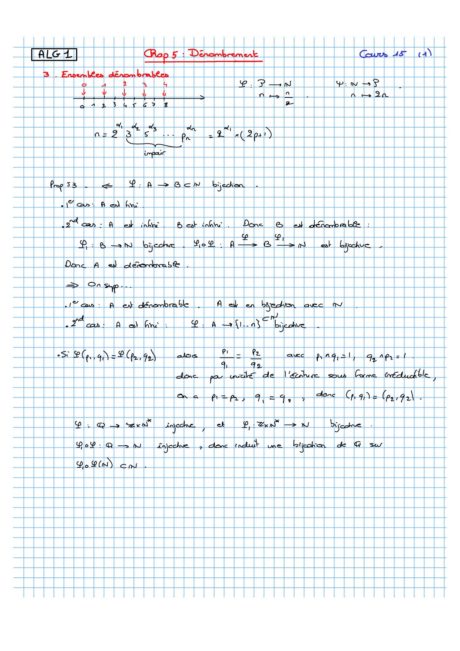 ALG 1 Chap 5 : Dénombrement Cours 15 (1)
3. Ensembles dénombrables
0 1 2 3 4
0 1 2 3 4 5 6 7 8
φ : P → N
n ↦ n/2
ψ : N → P
n ↦ 2n
n = 2^α₁ 3^α₂ 5^α₃ ... pₙ^αₙ = 2^α₁ × (2p+1)
impair
Prop 53 . ⇐ φ : A → B ⊂ N bijection .
. 1er cas : A est fini .
. 2nd cas : A est infini B est infini . Donc B est dénombrable :
φ₁ : B → N bijective . φ₁∘φ : A →φ B →φ₁ N est bijective .
Donc A est dénombrable .
⇒ On sup...
. 1er cas : A est dénombrable . A est en bijection avec N
. 2nd cas : A est fini : φ : A → {1..n} ⊂ N bijective .
. Si φ(p₁,q₁) = φ(p₂,q₂) alors p₁/q₁ = p₂/q₂ avec p₁∧q₁=1, q₂∧p₂=1
donc par unicité de l'écriture sous forme irréductible,
on a p₁=p₂, q₁=q₂, donc (p₁,q₁)=(p₂,q₂) .
φ : Q → Z×N* injective, et φ₁ : Z×N* → N bijective .
φ₁∘φ : Q → N injective, donc induit une bijection de Q sur
φ₁∘φ(N) ⊂ N .